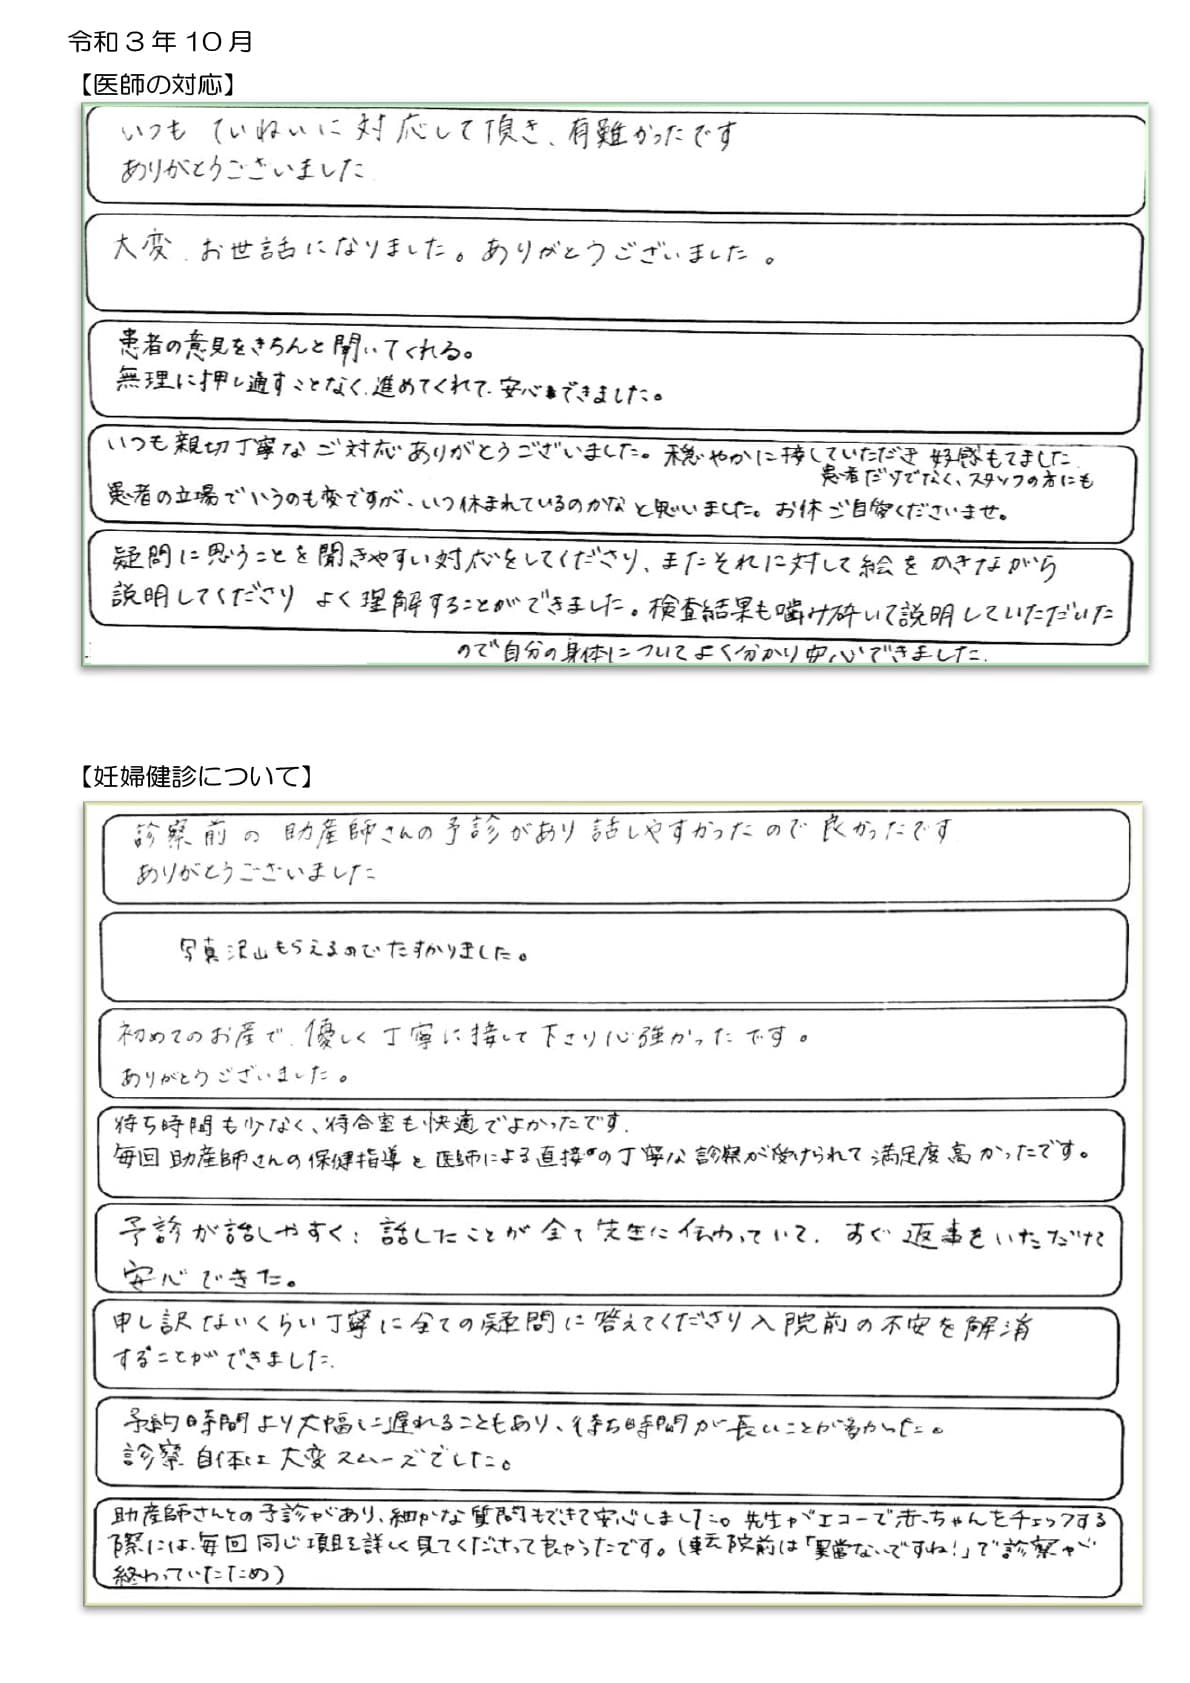 令和3年10月
【医師の対応】
いつも ていねいに対応して頂き、有難かったです
ありがとうございました
大変、お世話になりました。ありがとうございました。
患者の意見をきちんと聞いてくれる。
無理に押し通すことなく、進めてくれて、安心できました。
いつも親切丁寧なご対応ありがとうございました。穏やかに接していただき 好感もてました
患者だけでなく、スタッフの方にも
患者の立場でいうのも変ですが、いつ休まれているのかなと思いました。お体ご自愛くださいませ。
疑問に思うことを聞きやすい対応をしてくださり、またそれに対して絵をかきながら
説明してくださり よく理解することができました。検査結果も噛み砕いて説明していただいた
ので自分の身体についてよく分かり安心できました.
【妊婦健診について】
診察前の助産師さんの予診があり話しやすかったので良かったです
ありがとうございました
写真沢山もらえるのでたすかりました。
初めてのお産で、優しく丁寧に接して下さり心強かったです。
ありがとうございました。
待ち時間も少なく、待合室も快適でよかったです.
毎回助産師さんの保健指導と医師による直接の丁寧な診察が受けられて満足度高かったです。
予診が話しやすく、話したことが全て先生に伝わっていて、すぐ返事をいただけて
安心できた。
申し訳ないくらい丁寧に全ての疑問に答えてくださり入院前の不安を解消
することができました.
予約時間より大幅に遅れることもあり、待ち時間が長いことが多かった。
診察自体は大変スムーズでした。
助産師さんとの予診があり、細かな質問もできて安心しました。先生がエコーで赤ちゃんをチェックする
際には、毎回同じ項目を詳しく見てくださって良かったです。(転院前は「異常ないですね!」で診察が
終わっていたため)